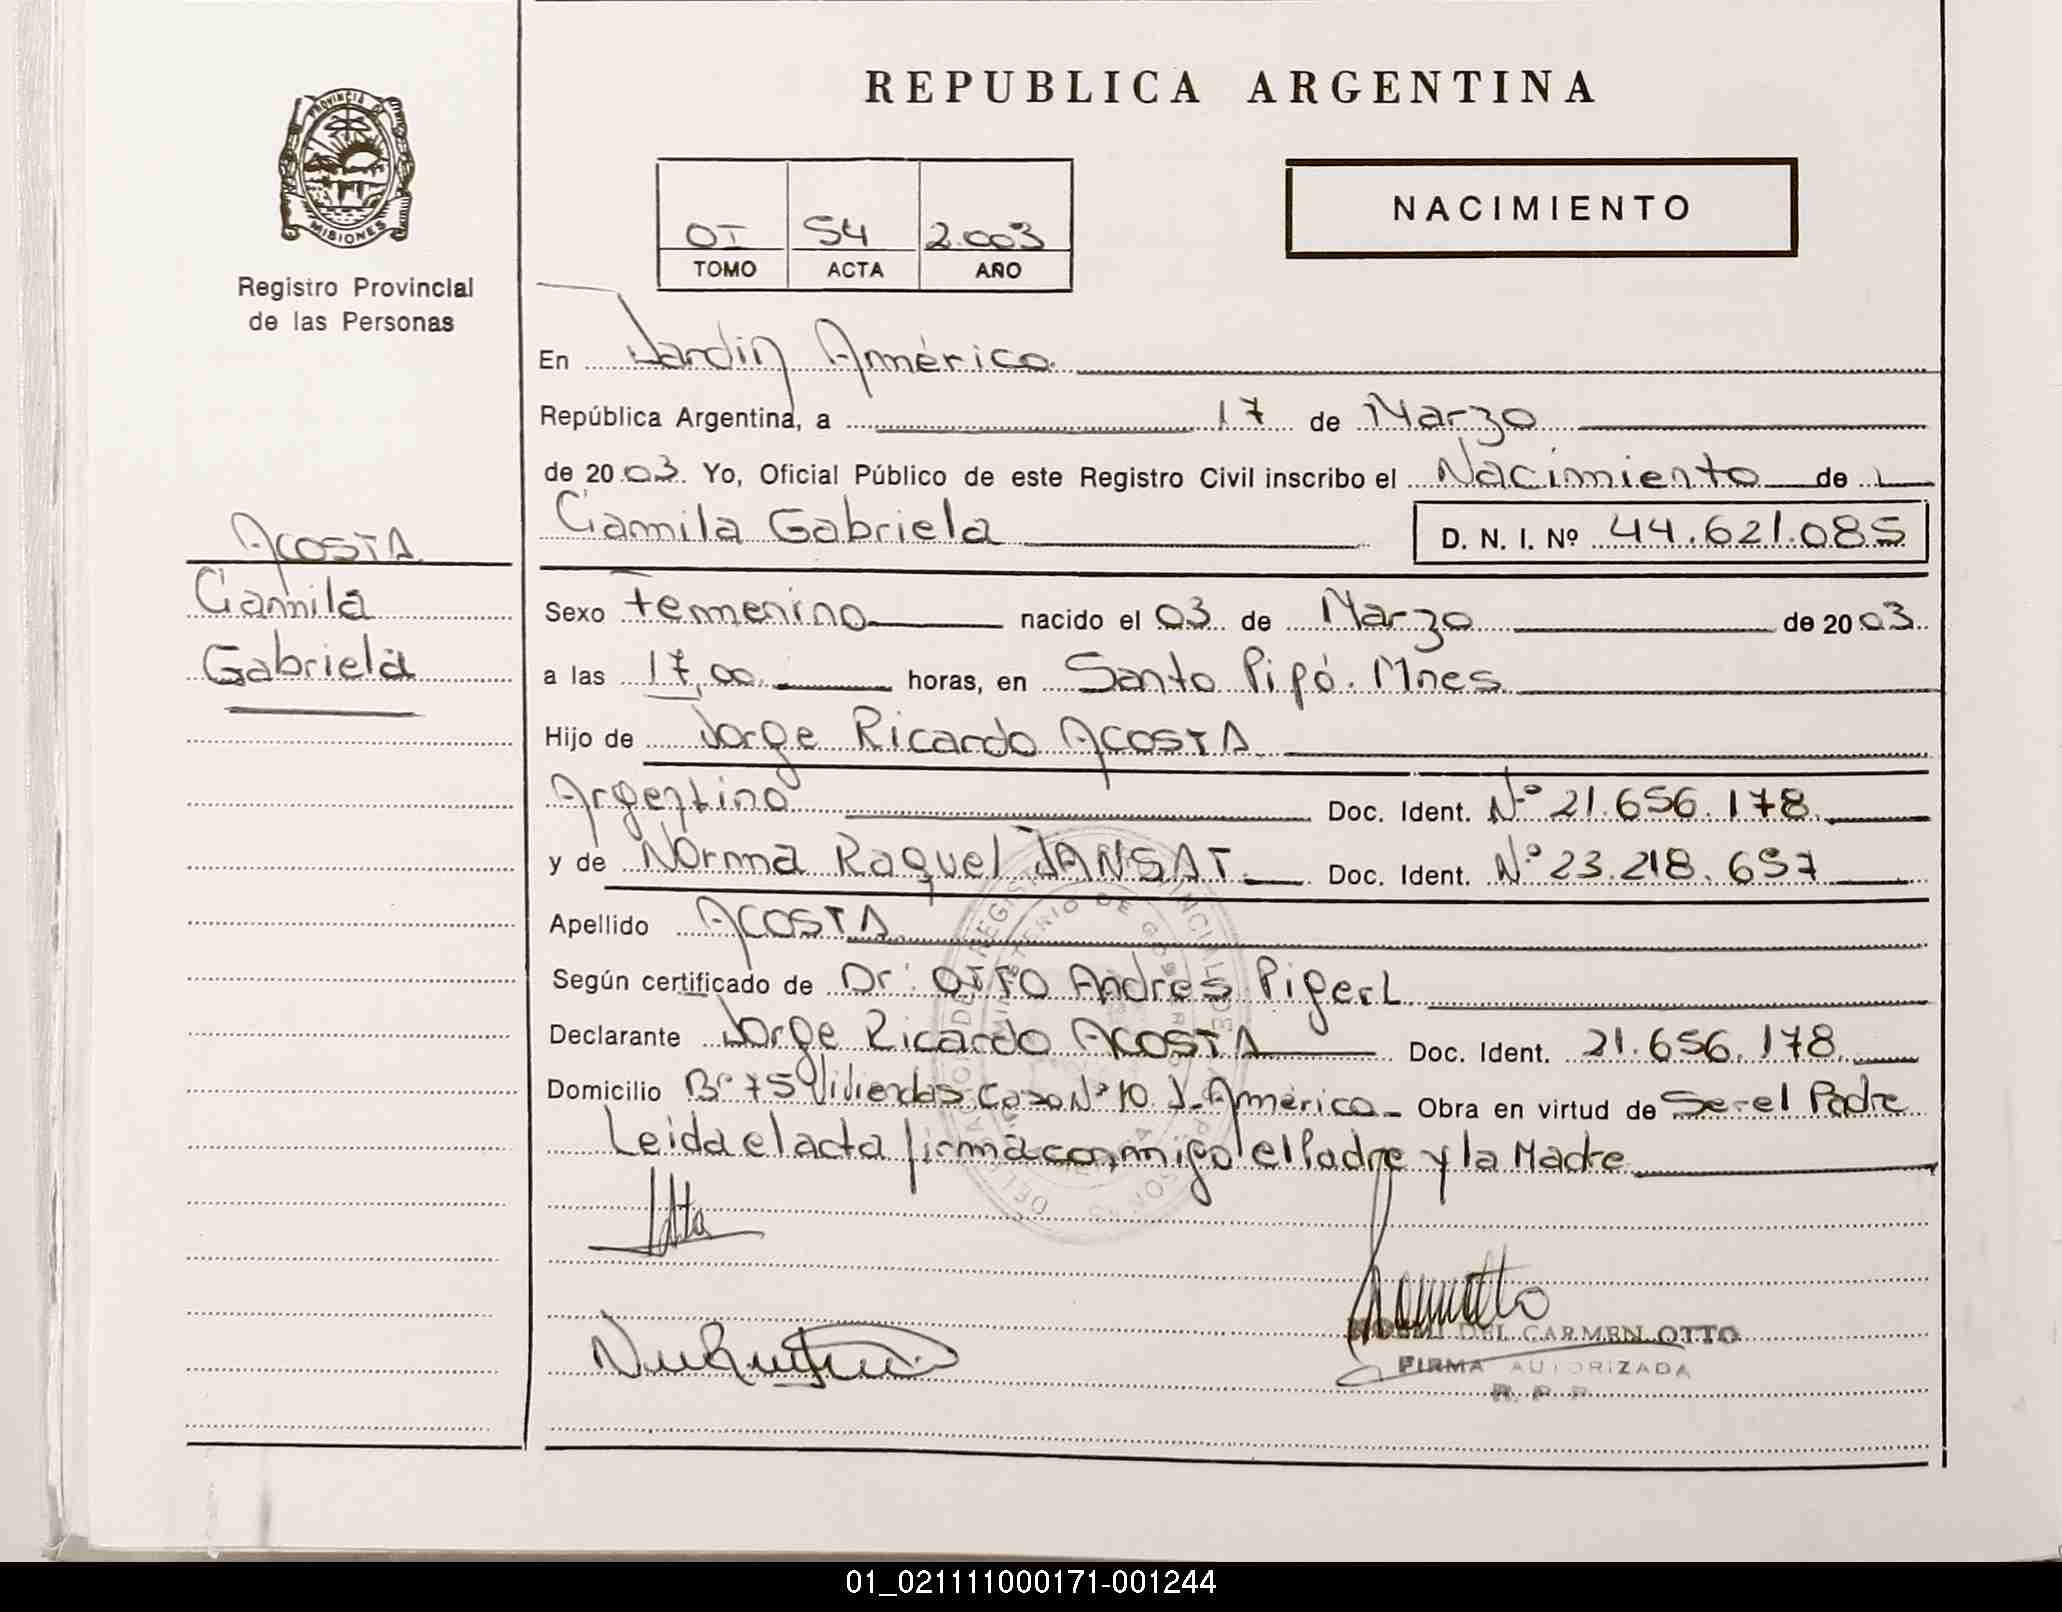 REPUBLICA ARGENTINA
PROVINCIA DE
MISIONES
Registro Provincial
de las Personas
OI 54 2.003
TOMO ACTA AÑO
NACIMIENTO
En Jardin América
República Argentina, a 17 de Marzo
de 2003 Yo, Oficial Público de este Registro Civil inscribo el Nacimiento de
Camila Gabriela D. N. I. Nº 44.621.085
ACOSTA
Camila
Gabriela
Sexo Femenino nacido el 03 de Marzo de 2003
a las 17,00 horas, en Santo Pipó. Mnes
Hijo de Jorge Ricardo ACOSTA
Argentino Doc. Ident. Nº 21.656.178
y de Norma Raquel JANSAT Doc. Ident. Nº 23.218.657
Apellido ACOSTA
Según certificado de Dr. OTTO Andrés Pigerl
Declarante Jorge Ricardo ACOSTA Doc. Ident. 21.656.178
Domicilio Bº 75 Viviendas Casa Nº 10 J. América Obra en virtud de Ser el Padre
Leida el acta firma conmigo el Padre y la Madre
DEL CARMEN OTTO
FIRMA AUTORIZADA
R. P. P.
01_021111000171-001244